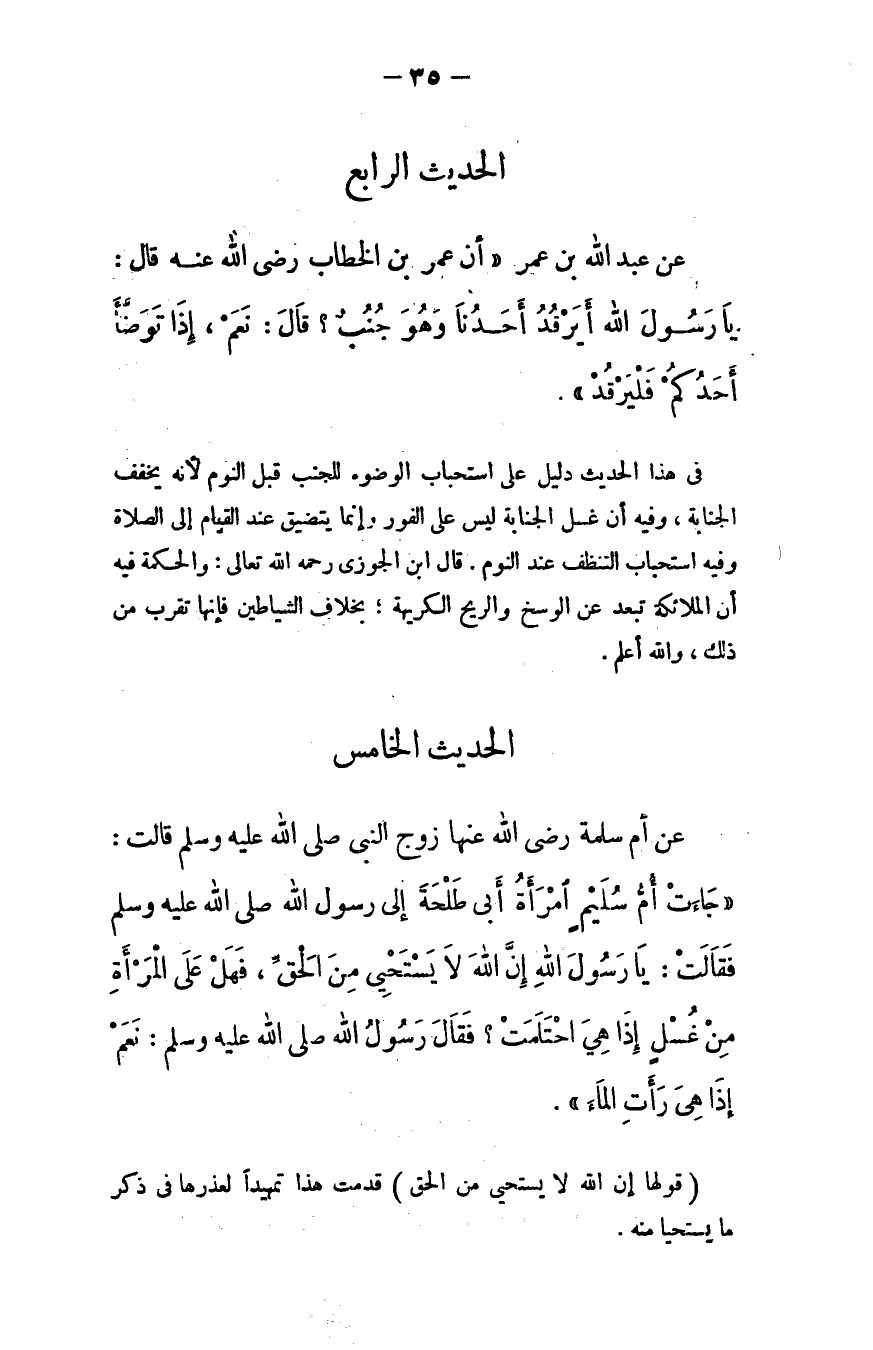 — ٣٥ —
الحديث الرابع
عن عبد الله بن عمر « أن عمر بن الخطاب رضى الله عنه قال :
يَا رَسُولَ الله أَيَرْقُدُ أَحَدُنَا وَهُوَ جُنُبٌ ؟ قَالَ : نَعَمْ ، إِذَا تَوَضَّأَ
أَحَدُكُمْ فَلْيَرْقُدْ » .
فى هذا الحديث دليل على استحباب الوضوء للجنب قبل النوم لأنه يخفف
الجنابة ، وفيه أن غسل الجنابة ليس على الفور وإنما يتضيق عند القيام إلى الصلاة
وفيه استحباب التنظف عند النوم . قال ابن الجوزى رحمه الله تعالى : والحكمة فيه
أن الملائكة تبعد عن الوسخ والريح الكريهة ؛ بخلاف الشياطين فإنها تقرب من
ذلك ، والله أعلم .
الحديث الخامس
عن أم سلمة رضى الله عنها زوج النبى صلى الله عليه وسلم قالت :
« جَاءَتْ أُمُّ سُلَيْمٍ ٱمْرَأَةُ أَبى طَلْحَةَ إلى رسول الله صلى الله عليه وسلم
فَقَالَتْ : يَا رَسُولَ اللهِ إِنَّ اللهَ لاَ يَسْتَحْيِي مِنَ الَحْقِّ ، فَهَلْ عَلَى الْمَرْأَةِ
مِنْ غُسْلٍ إِذَا هِيَ احْتَلَمَتْ ؟ فَقَالَ رَسُولُ الله صلى الله عليه وسلم : نَعَمْ
إِذَا هِىَ رَأَتِ المَاَءَ » .
( قولها إن الله لا يستحيى من الحق ) قدمت هذا تمهيداً لعذرها فى ذكر
ما يستحيا منه .